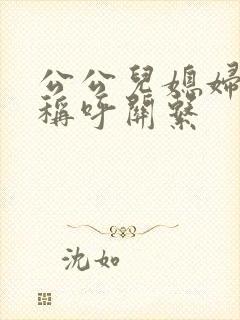 公公兒媳婦
稱呼關繫
沈如